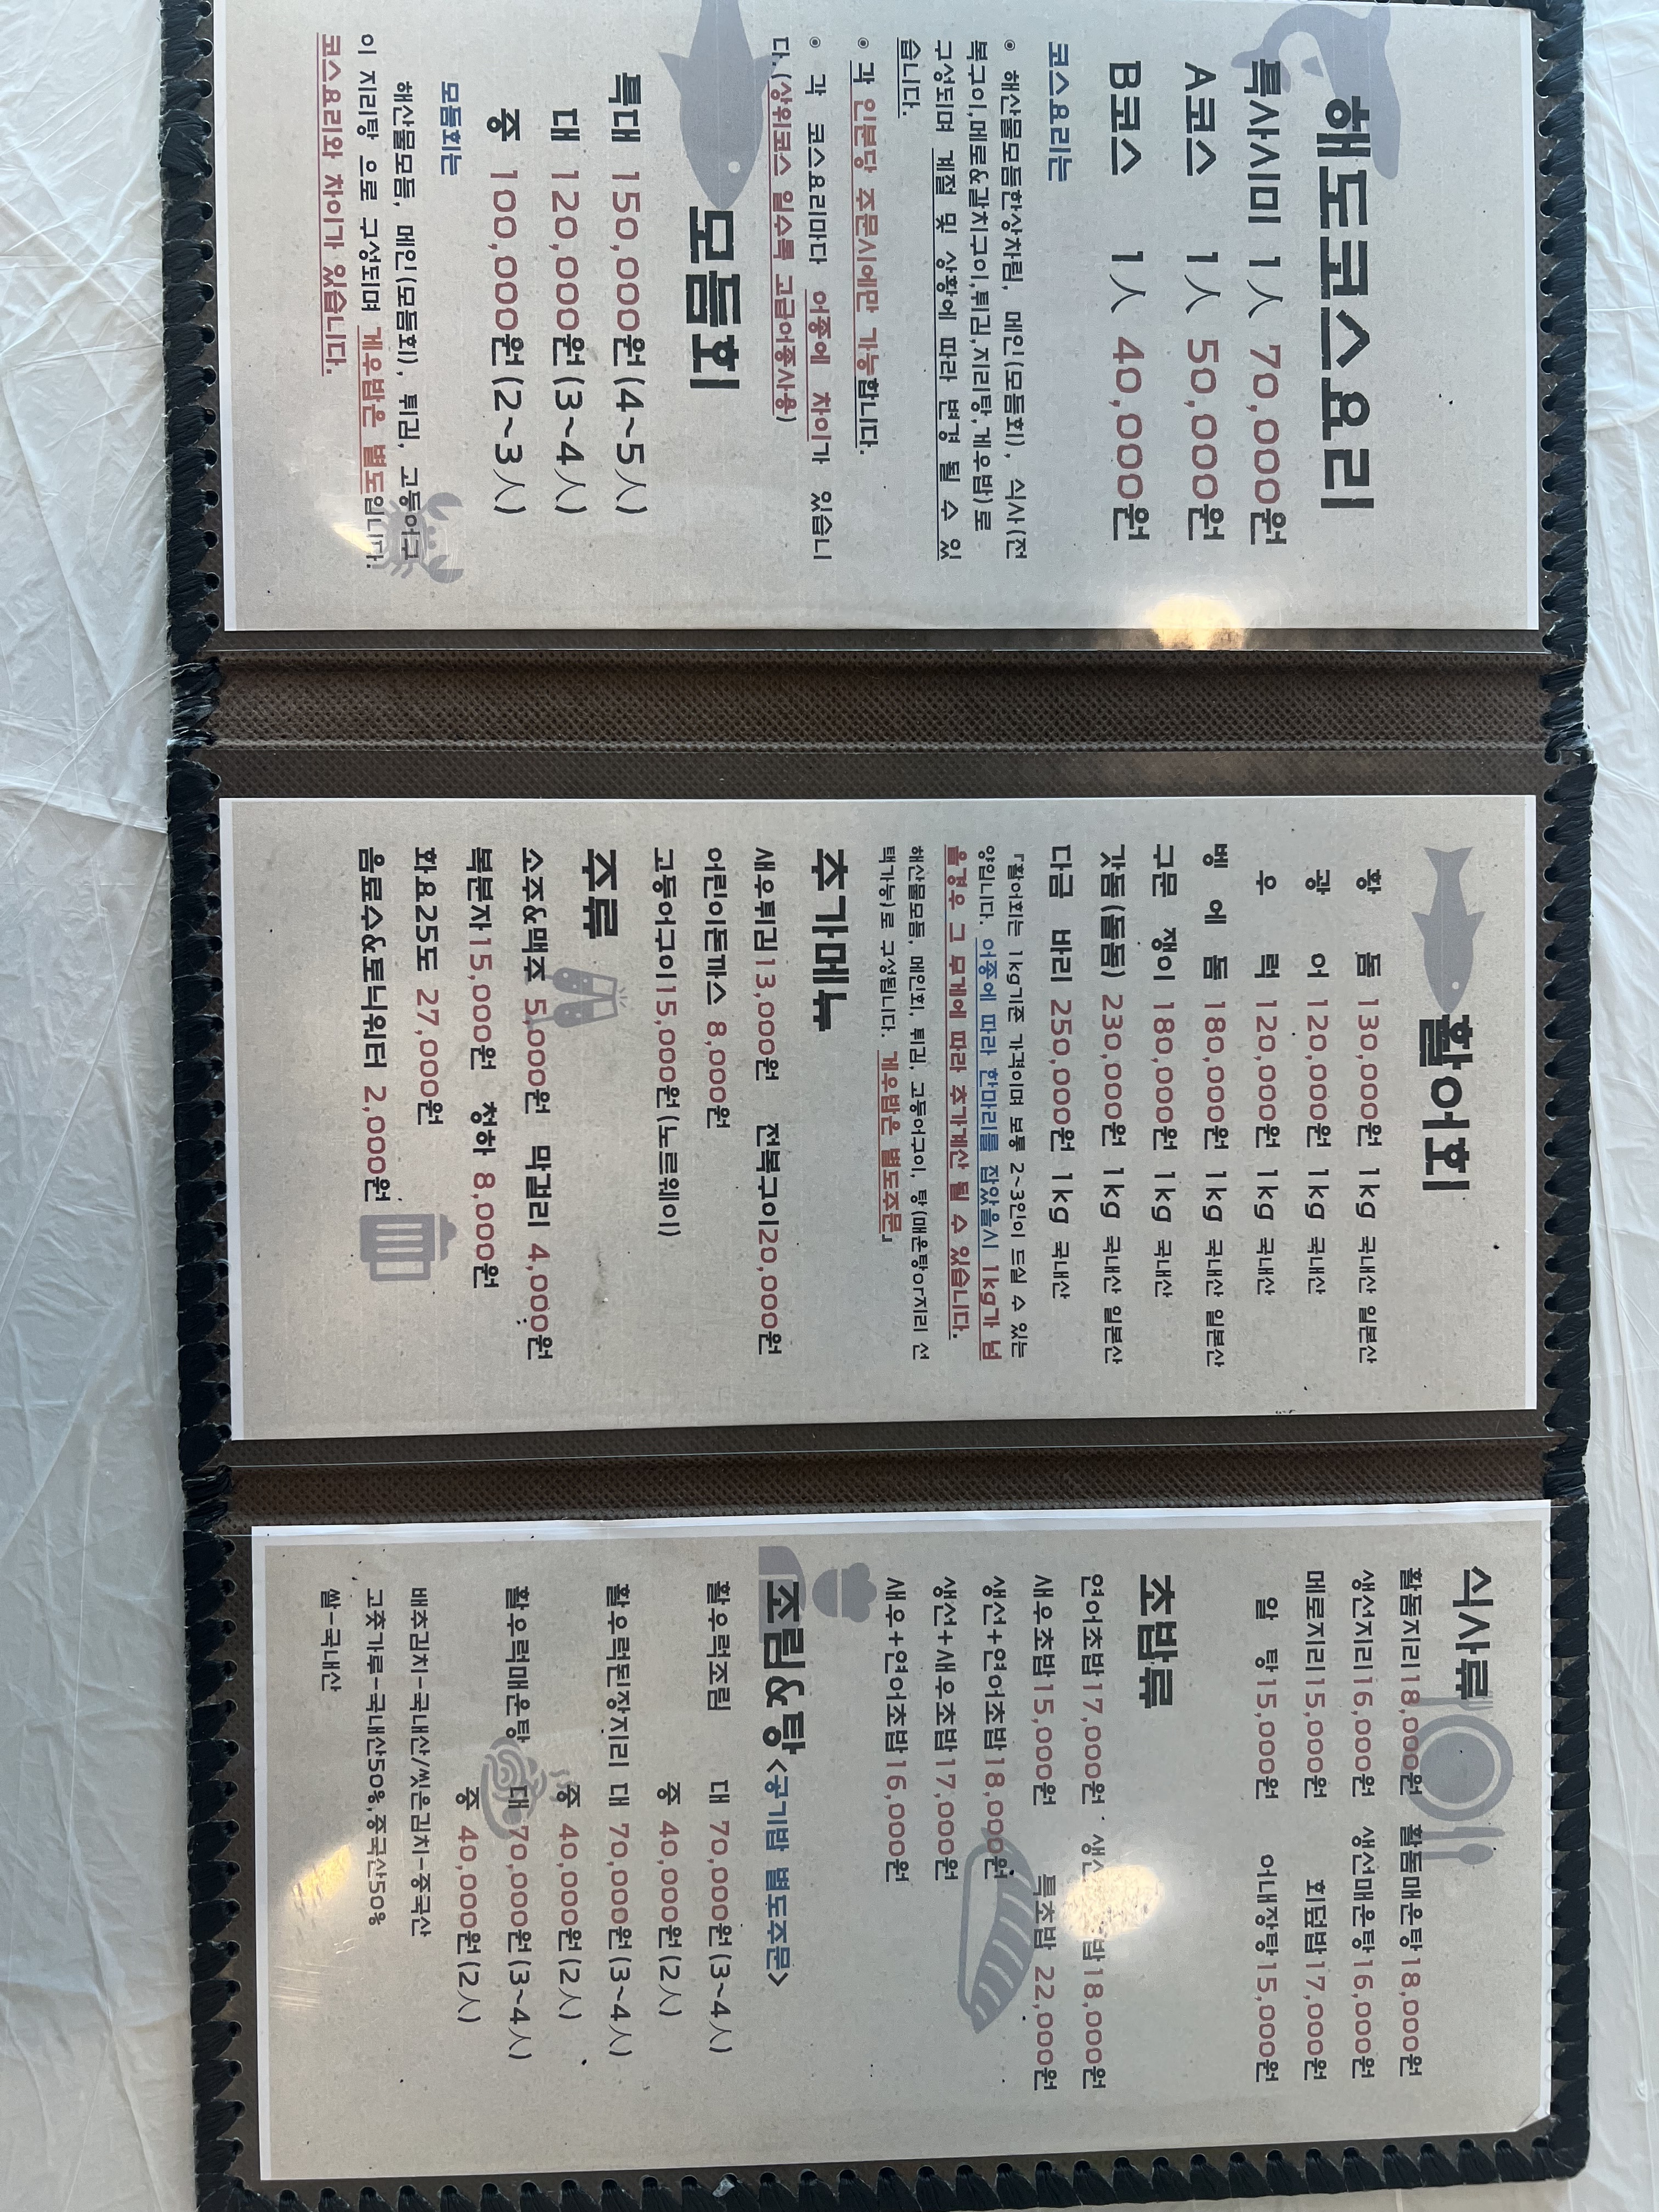 해도코스요리
특사시미 1人 70,000원
A코스 1人 50,000원
B코스 1人 40,000원
코스요리는
◉ 해산물모듬한상차림, 메인(모듬회), 식사(전
복구이,메로&갈치구이,튀김,지리탕,게우밥)로
구성되며 계절 및 상황에 따라 변경 될 수 있
습니다.
◉ 각 인분당 주문시에만 가능합니다.
◉ 각 코스요리마다 어종에 차이가 있습니
다.(상위코스 일수록 고급어종사용)
모듬회
특대 150,000원(4~5人)
대 120,000원(3~4人)
중 100,000원(2~3人)
모듬회는
해산물모듬, 메인(모듬회), 튀김, 고등어구
이 지리탕 으로 구성되며 게우밥은 별도입니다.
코스요리와 차이가 있습니다.
활어회
황 돔 130,000원 1kg 국내산 일본산
광 어 120,000원 1kg 국내산
우 럭 120,000원 1kg 국내산
벵 에 돔 180,000원 1kg 국내산 일본산
구문 쟁이 180,000원 1kg 국내산
갓돔(돌돔) 230,000원 1kg 국내산 일본산
다금 바리 250,000원 1kg 국내산
『활어회는 1kg기준 가격이며 보통 2~3인이 드실 수 있는
양입니다. 어종에 따라 한마리를 잡았을시 1kg가 넘
을경우 그 무게에 따라 추가계산 될 수 있습니다.
해산물모듬, 메인회, 튀김, 고등어구이, 탕(매운탕or지리 선
택가능)로 구성됩니다. 게우밥은 별도주문』
추가메뉴
새우튀김13,000원 전복구이20,000원
어린이돈까스 8,000원
고등어구이15,000원(노르웨이)
주류
소주&맥주 5,000원 막걸리 4,000원
복분자15,000원 청하 8,000원
화요25도 27,000원
음료수&토닉워터 2,000원
식사류
활돔지리18,000원 활돔매운탕18,000원
생선지리16,000원 생선매운탕16,000원
메로지리15,000원 회덮밥17,000원
알 탕15,000원 어내장탕15,000원
초밥류
연어초밥17,000원 18,000원
새우초밥15,000원 특초밥 22,000원
생선+연어초밥18,000원
생선+새우초밥17,000원
새우+연어초밥16,000원
조림&탕<공기밥 별도주문>
활우럭조림 대 70,000원(3~4人)
중 40,000원(2人)
활우럭된장지리 대 70,000원(3~4人)
중 40,000원(2人)
활우럭매운탕 대 70,000원(3~4人)
중 40,000원(2人)
배추김치-국내산/씻은김치-중국산
고춧가루-국내산50%,중국산50%
쌀-국내산